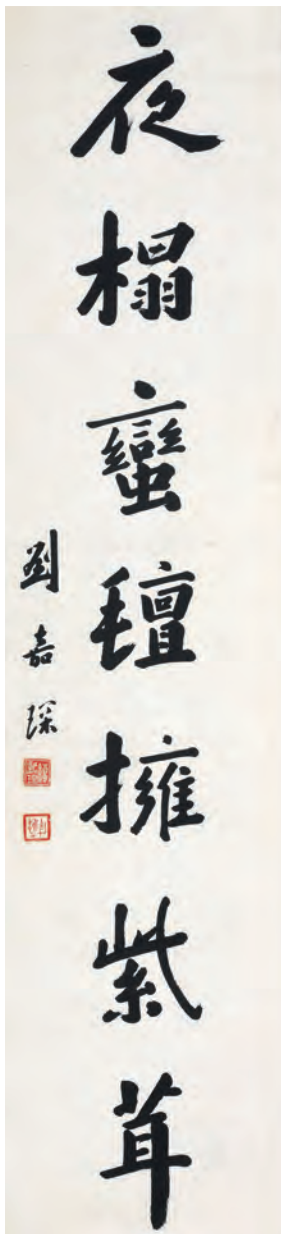 夜榻蠻氊擁紫茸
劉嘉琛